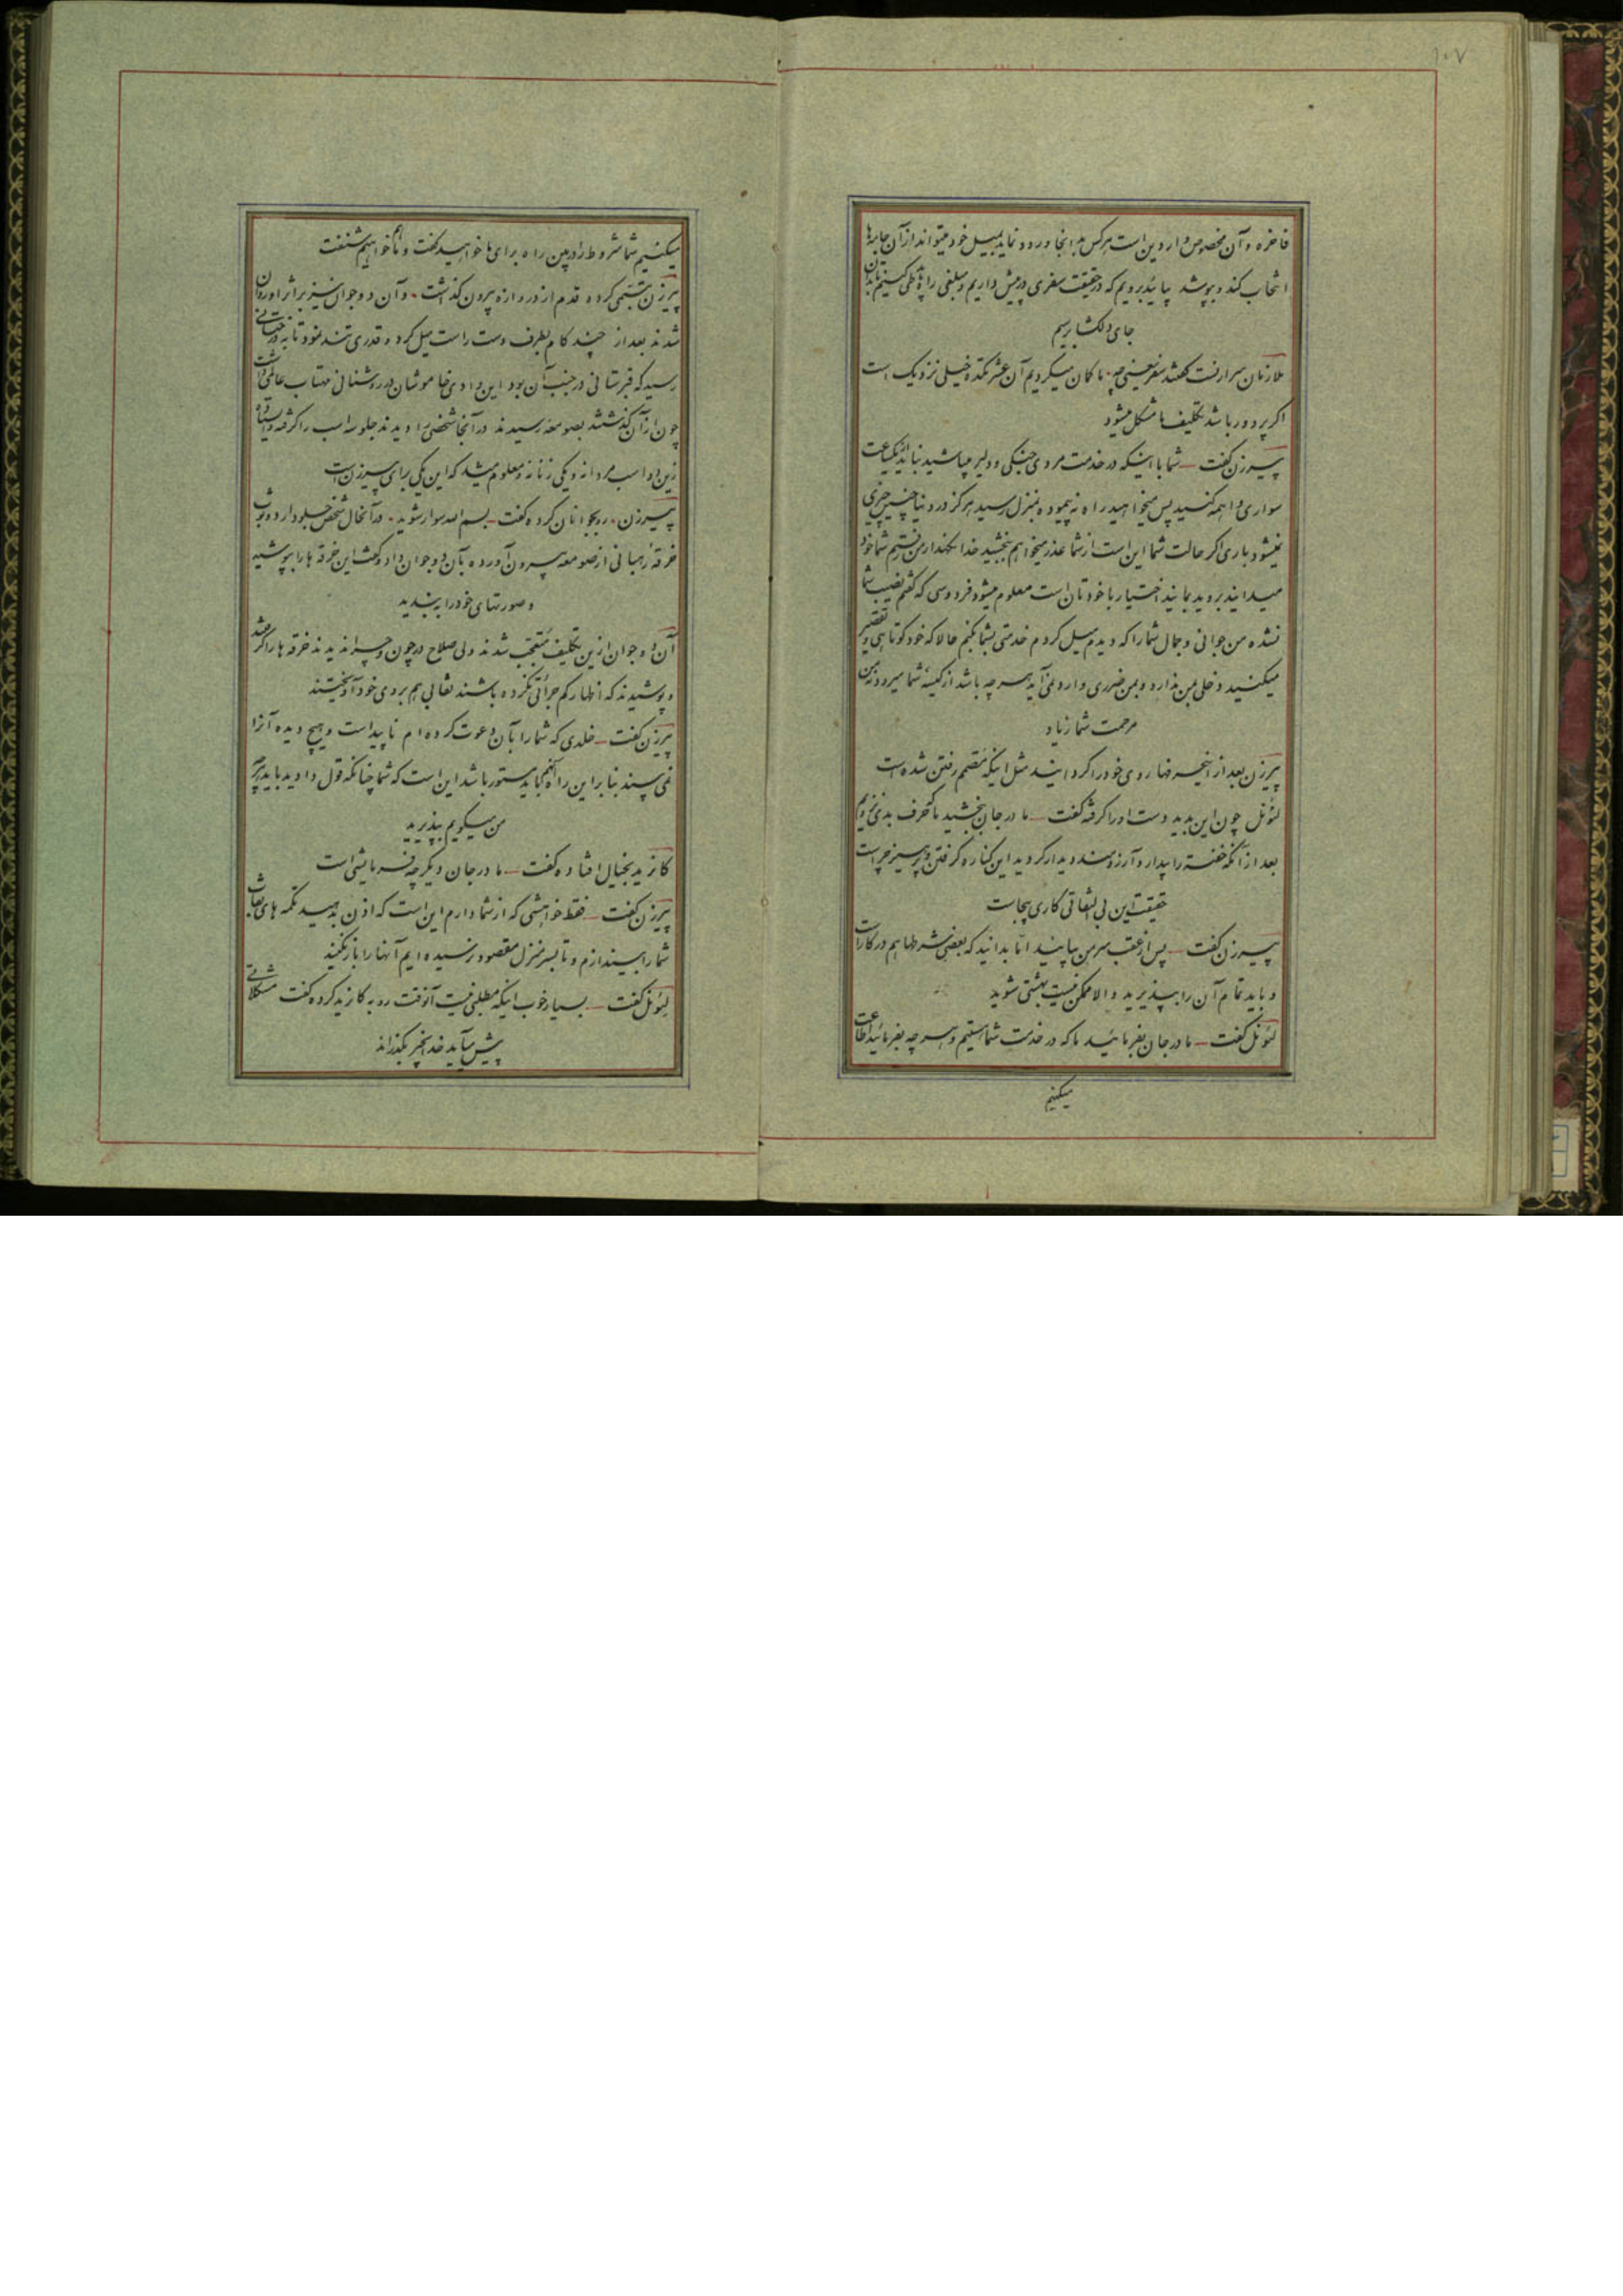 ۱۰۷
فاخره و آن مخصوص واردین است هر کس بد انجا ورود نماید بمیل خود میتواند از آن جامه‌ها
انتخاب کند و بپوشد بیائید برویم که در حقیقت سفری در پیش داریم و مبلغی راه باید طی کنیم تا بدان
جای دلگشا برسیم
ملازمان سرارنست گفتند سفر یعنی چه ما گمان میکردیم آن عشرتکده خیلی نزدیک است
اگر پر دور باشد تکلیف ما مشکل میشود
پیرزن گفت ــ شما با اینکه در خدمت مردی جنگی و دلیر میباشید نباید از یکساعت
سواری واهمه کنید پس میخواهید راه نه پیموده بمنزل رسید هرگز در دنیا چنین چیزی
نمیشود باری اگر حالت شما این است از شما عذر میخواهم ببخشید خدا نگهدار من رفتم شما خود
میدانید بروید بمانید اختیار با خودتان است معلوم میشود فردوسی که گفتم نصیب شما
نشده من جوانی و جمال شما را که دیدم میل کردم خدمتی بشما بکنم حالا که خود کوتاهی و تقصیر
میکنید دخلی بمن ندارد و بمن ضرری وارد نمی‌آید هر چه باشد از کیسهٔ شما میرود نه من
مرحمت شما زیاد
پیرزن بعد از اینحرفها روی خود را گردانید مثل اینکه مصمم رفتن شده است
لئونل چون این بدید دست او را گرفته گفت ــ مادر جان ببخشید ما حرف بدی نزدیم
بعد از آنکه خفته را بیدار و آرزومند دیدار کردید این کناره گرفتن و پرهیز چراست
حقیقت این بی التفاتی کاری بیجاست
پیرزن گفت ــ پس از عقب سر من بیائید امّا بدانید که بعضی شرطها هم در کار است
و باید تمام آن را بپذیرید و الا ممکن نیست بهشتی شوید
لئونل گفت ــ مادر جان بفرمائید ما که در خدمت شما هستیم و هر چه بفرمائید اطاعت
میکنیم
میکنیم شما شروط را در بین راه برای ما خواهید گفت و ما هم خواهیم شنفت
پیرزن تبسّمی کرده قدم از دروازه بیرون گذاشت. و آن دو جوان نیز بر اثر او روان
شدند بعد از چند گام بطرف دست راست میل کرده قدری تند نمود تا به درختانی
رسید که قبرستانی در جنب آن بود این وادی خاموشان در روشنائی مهتاب عالمی داشت
چون از آن گذشتند بصومعه رسیدند در آنجا شخصی را دیدند جلو سه اسب را گرفته و ایستاده
زین دو اسب مردانه و یکی زنانه و معلوم میشد که این یکی برای پیرزن است
پیرزن. رو بجوانان کرده گفت ــ بسم الله سوار شوید. در آنحال شخص جلودار دو ثوب
خرقهٔ رهبانی از صومعه بیرون آورده بآن دو جوان داد و گفت این خرقه ها را بپوشید
و صورتهای خود را به بندید
آن دو جوان از این تکلیف متعجب شدند ولی صلاح در چون و چرا ندیدند خرقه ها را گرفتند
و پوشیدند که اظهار کم جرأتی نکرده باشند نقابی هم بروی خود آویختند
پیرزن گفت ــ خلدی که شما را بآن دعوت کرده ام ناپیداست و هیچ دیده آنرا
نمی‌بیند بنابراین راه آنهم باید مستور باشد این است که شما چنانکه قول دادید باید هر چه
من میگویم بپذیرید
کازبد بخیال افتاده گفت ــ مادر جان دیگر چه فرمایشی است
پیرزن گفت ــ فقط خواهشی که از شما دارم این است که اذن بدهید تکمه های نقاب
شما را بیندازم و تا بسر منزل مقصود نرسیده ایم آنها را باز نکنید
لئونل گفت ــ بسیار خوب اینکه مطلبی نیست آنوقت رو به کازبد کرده گفت مشکلاتی
پیش میآید خدا بخیر بگذراند